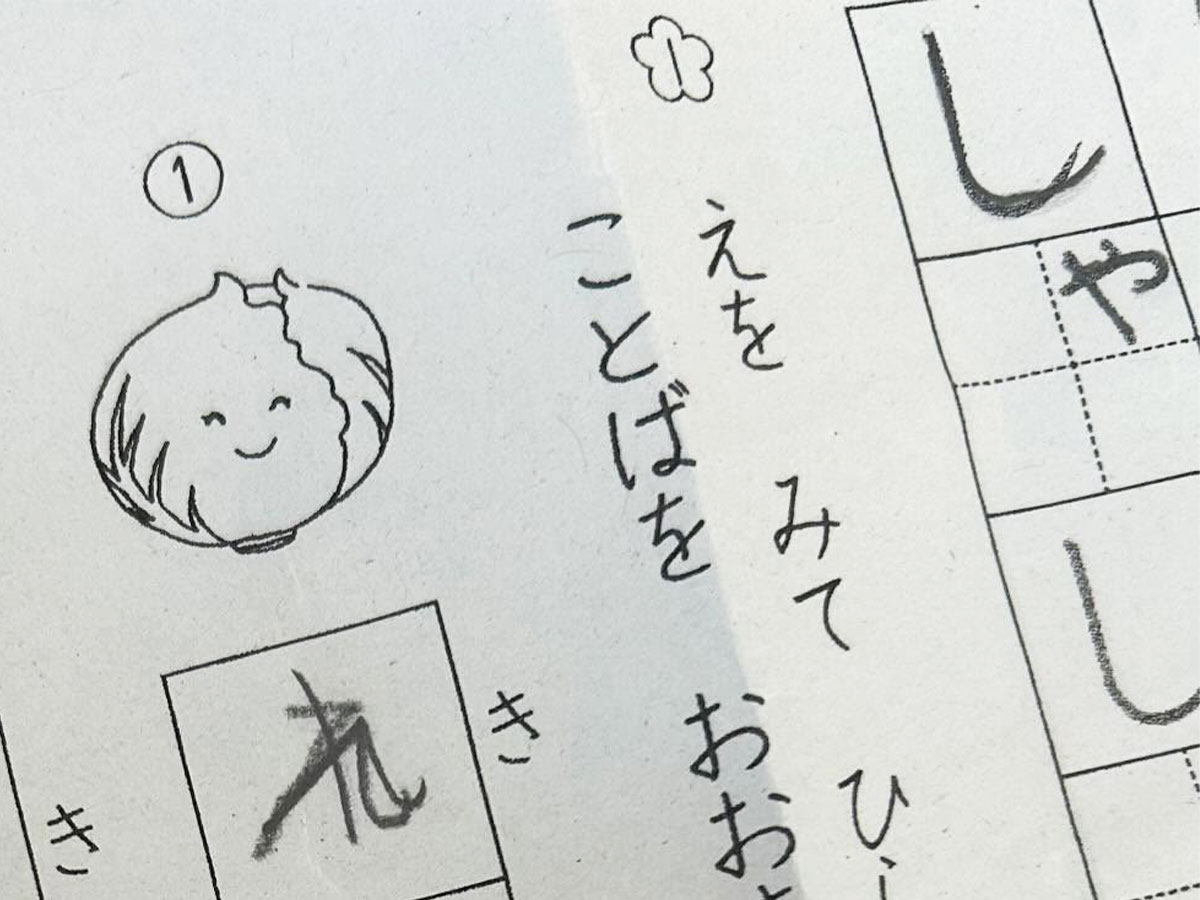 しゃ
し
1
えを みて ひ
ことばを おお
①
き
れ
き